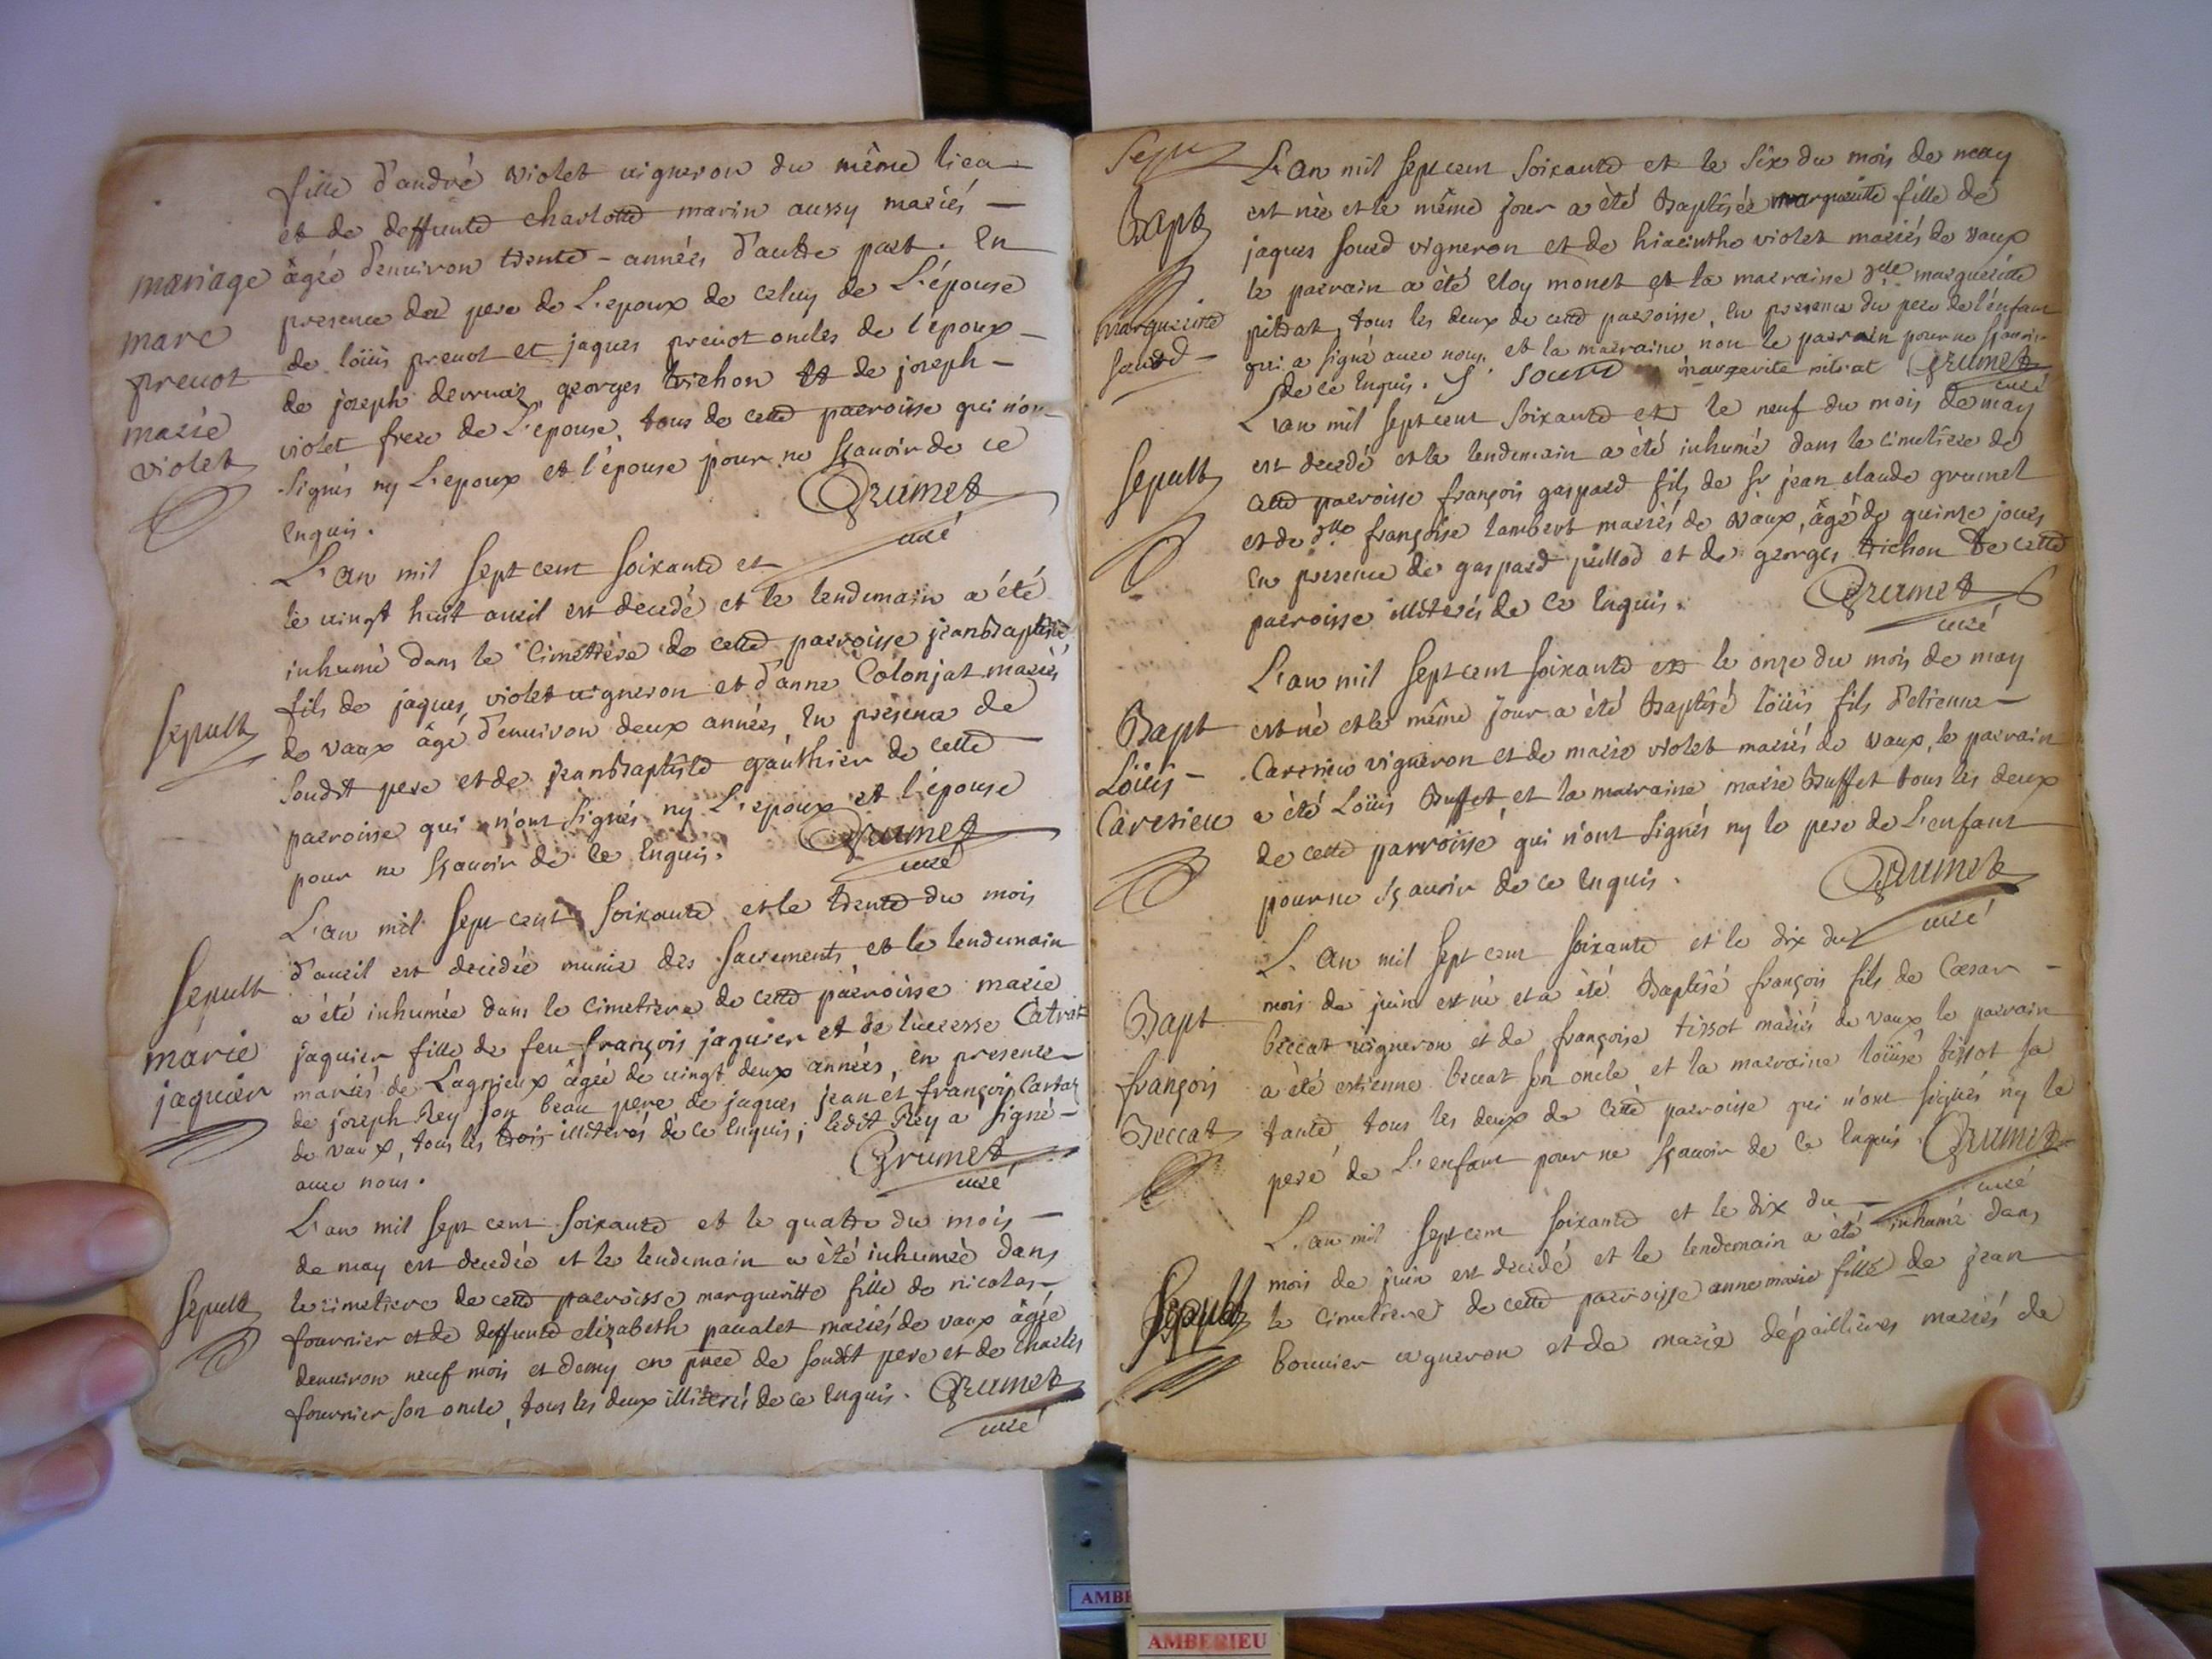 fille d'andré violet vigneron du même lieu
et de deffunte charlotte marin aussy mariés
mariage
âgée d'environ trente années d'autre part. En
presence du pere de L'epoux de celuy de L'épouse
marc
de loüis prevot et jaques prevot oncles de l'époux
prevot
de joseph georges trichon et de joseph
marie
violet frere de L'epouse, tous de cette parroisse qui n'ont
violet
signés ny L'epoux et l'épouse pour ne sçavoir de ce
Enquis.
Grumet
curé
L'an mil sept cent soixante et
le vingt huit avril est decedé et le lendemain a été
inhumé dans le Cimetiere de cette parroisse jeanbaptiste
fils de jaques violet vigneron et d'anne Colonjat mariés
Sepult
de vaux âgé d'environ deux années, En presence de
sondit pere et de jeanbaptiste gauthier de cette
parroisse qui n'ont signés ny L'epoux et l'épouse
pour ne sçavoir de ce Enquis.
Grumet
curé
L'an mil sept cent soixante et le trente du mois
d'avril est decedée munie des sacrements et le lendemain
Sepult
a été inhumée dans le Cimetiere de cette parroisse marie
marie
jaquier fille de feu françois jaquier et de lucresse
jaquier
mariés de Lagnieux âgée de vingt deux années, en presence
de joseph Rey son beau pere de jaques jean et françois
de vaux, tous les trois illiterés de ce Enquis; ledit Rey a signé
avec nous.
Grumet
curé
L'an mil sept cent soixante et le quatre du mois
de may est decedée et le lendemain a été inhumée dans
Sepult
le cimetiere de cette parroisse margueritte fille de nicolas
fournier et de deffunte elizabeth pavalet mariés de vaux âgée
denviron neuf mois et demy en pnce de sondit pere et de charles
fournier son oncle, tous les deux illiterés de ce Enquis.
Grumet
curé
Sepu
L'an mil sept cent soixante et le six du mois de may
Bapt
est née et le même jour a été Baptisée margueritte fille de
jaques sourd vigneron et de hiacinthe violet mariés de vaux
le parrain a été eloy monet et la marraine dlle margueritte
margueritte
pitrat, tous les deux de cette parroisse, En presence du pere de l'enfant
sourd
qui a signé avec nous, et la marraine non le parrain pour ne sçavoir
de ce Enquis. J sourd margerite pitrat Grumet
curé
L'an mil sept cent soixante et le neuf du mois de may
Sepult
est decedé et le lendemain a été inhumé dans le cimetiere de
cette parroisse françois gaspard fils de sr jean claude grumet
et de dlle françoise lambert mariés de vaux, âgé de quinze jours
En presence de gaspard et de georges trichon de cette
parroisse illiterés de ce Enquis.
Grumet
curé
L'an mil sept cent soixante et le onze du mois de may
Bapt
est né et le même jour a été Baptisé loüis fils d'etienne
Loüis
Caresieu vigneron et de marie violet mariés de vaux, le parrain
Caresieu
a été Loüis Buffet, et la marraine marie Buffet tous les deux
de cette parroisse qui n'ont signés ny le pere de L'enfant
pour ne sçavoir de ce Enquis.
Grumet
curé
L'an mil sept cent soixante et le dix du
mois de juin est né et a été Baptisé françois fils de Cæsar
Bapt
beccat vigneron et de françoise tissot mariés de vaux le parrain
françois
a été estienne beccat son oncle et la marraine loüise tissot sa
Beccat
tante tous les deux de cette parroisse qui n'ont signés ny le
pere de L'enfant pour ne sçavoir de ce Enquis.
Grumet
curé
L'an mil sept cent soixante et le dix du
mois de juin est decedé et le lendemain a été inhumé dans
Sepult
le Cimetiere de cette parroisse anne marie fille de jean
bouvier vigneron et de marie dépaillieres mariés de
AMBE
AMBERIEU